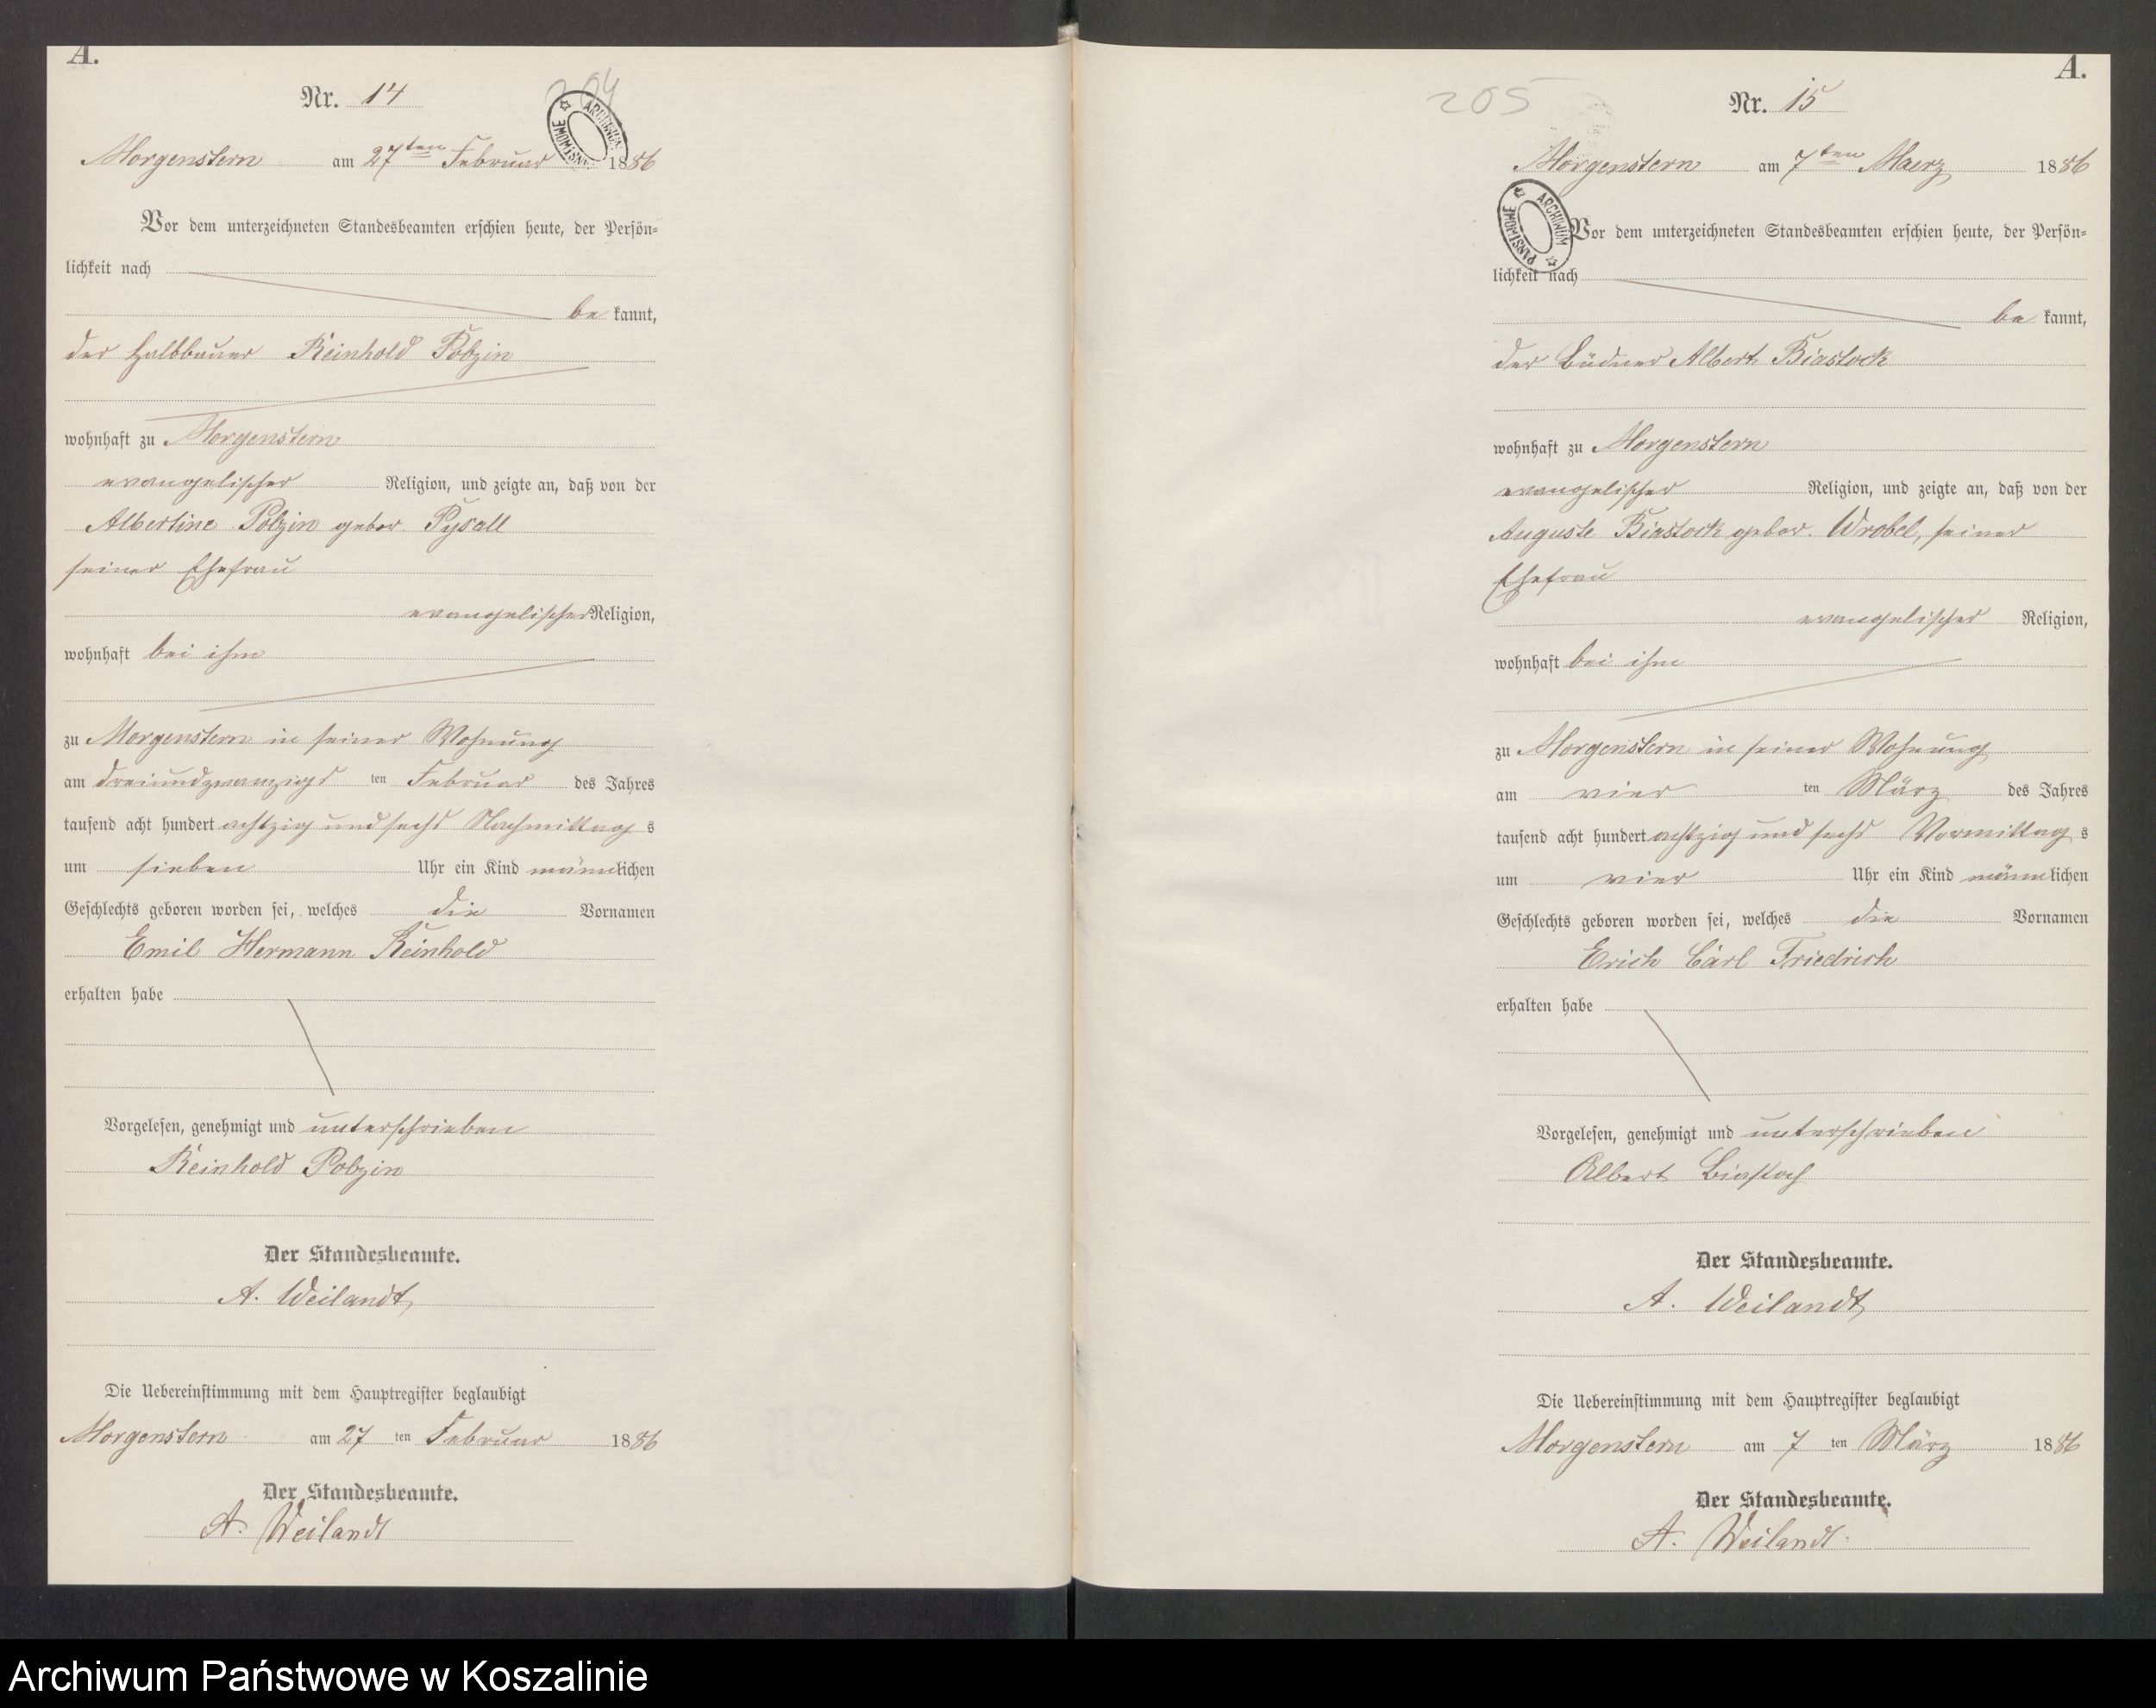 A.
204
ARCHIWUM PAŃSTWOWE
Nr. 14
Morgenstern am 27ten Februar 1886
Vor dem unterzeichneten Standesbeamten erschien heute, der Persön-
lichkeit nach
be kannt,
der Halbbauer Reinhold Polzin
wohnhaft zu Morgenstern
evangelischer Religion, und zeigte an, daß von der
Albertine Polzin gebor. Pysall
seiner Ehefrau
evangelischer Religion,
wohnhaft bei ihm
zu Morgenstern in seiner Wohnung
am dreiundzwanzigs ten Februar des Jahres
tausend acht hundert achtzig und sechs Nachmittag s
um sieben Uhr ein Kind männlichen
Geschlechts geboren worden sei, welches die Vornamen
Emil Hermann Reinhold
erhalten habe
Vorgelesen, genehmigt und unterschrieben
Reinhold Polzin
Der Standesbeamte.
A. Weilandt
Die Uebereinstimmung mit dem Hauptregister beglaubigt
Morgenstern am 27 ten Februar 1886
Der Standesbeamte.
A. Weilandt
A.
205
Nr. 15
Morgenstern am 7ten Maerz 1886
ARCHIWUM PAŃSTWOWE
Vor dem unterzeichneten Standesbeamten erschien heute, der Persön-
lichkeit nach
be kannt,
der Büdner Albert Biastock
wohnhaft zu Morgenstern
evangelischer Religion, und zeigte an, daß von der
Auguste Biastock gebor. Wrobel, seiner
Ehefrau
evangelischer Religion,
wohnhaft bei ihm
zu Morgenstern in seiner Wohnung
am vier ten März des Jahres
tausend acht hundert achtzig und sechs Vormittag s
um vier Uhr ein Kind männlichen
Geschlechts geboren worden sei, welches die Vornamen
Erich Carl Friedrich
erhalten habe
Vorgelesen, genehmigt und unterschrieben
Albert Biastoch
Der Standesbeamte.
A. Weilandt
Die Uebereinstimmung mit dem Hauptregister beglaubigt
Morgenstern am 7 ten März 1886
Der Standesbeamte.
A. Weilandt.
Archiwum Państwowe w Koszalinie